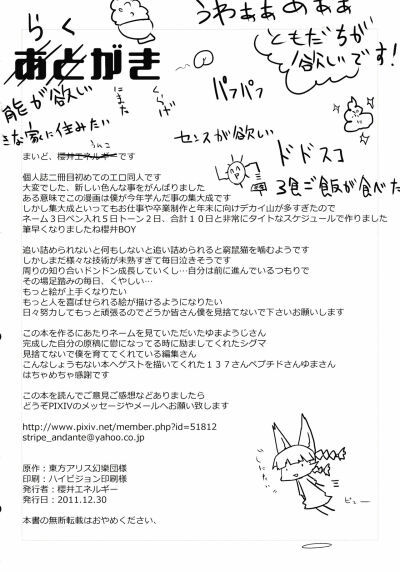 らく
あとがき
うわぁぁぁめぁぁ
ともだちが
欲しいです!
能が欲しい
にまた
くらげ
パフパフ
きな家に住みたい
センスが欲しい
ドドスコ
3食ご飯が食べた
うんこ
まいど、櫻井エネルギーです
個人誌二冊目初めてのエロ同人です
大変でした、新しい色んな事をがんばりました
ある意味でこの漫画は僕が今年学んだ事の集大成です
しかし集大成といってもお仕事や卒業制作と年末に向けデカイ山が多すぎたので
ネーム3日ペン入れ5日トーン2日、合計10日と非常にタイトなスケジュールで作りました
筆早くなりましたね櫻井BOY
追い詰められないと何もしないと追い詰められると窮鼠猫を噛むようです
しかしまだ様々な技術が未熟すぎて毎日泣きそうです
周りの知り合いドンドン成長していくし…自分は前に進んでいるつもりで
その場足踏みの毎日、くやしい…
もっと絵が上手くなりたい
もっと人を喜ばせられる絵が描けるようになりたい
日々努力してもっと頑張るのでどうか皆さん僕を見捨てないで下さいお願いします
この本を作るにあたりネームを見ていただいたゆまようじさん
完成した自分の原稿に鬱になってる時に励ましてくれたシグマ
見捨てないで僕を育ててくれている編集さん
こんなしょうもない本へゲストを描いてくれた137さんペプチドさんゆまさん
はちゃめちゃ感謝です
この本を読んでご意見ご感想などありましたら
どうぞPIXIVのメッセージやメールへお願い致します
http://www.pixiv.net/member.php?id=51812
stripe_andante@yahoo.co.jp
原作：東方アリス幻樂団様
印刷：ハイビジョン印刷様
発行者：櫻井エネルギー
発行日：2011.12.30
本書の無断転載はおやめください、
ピュー